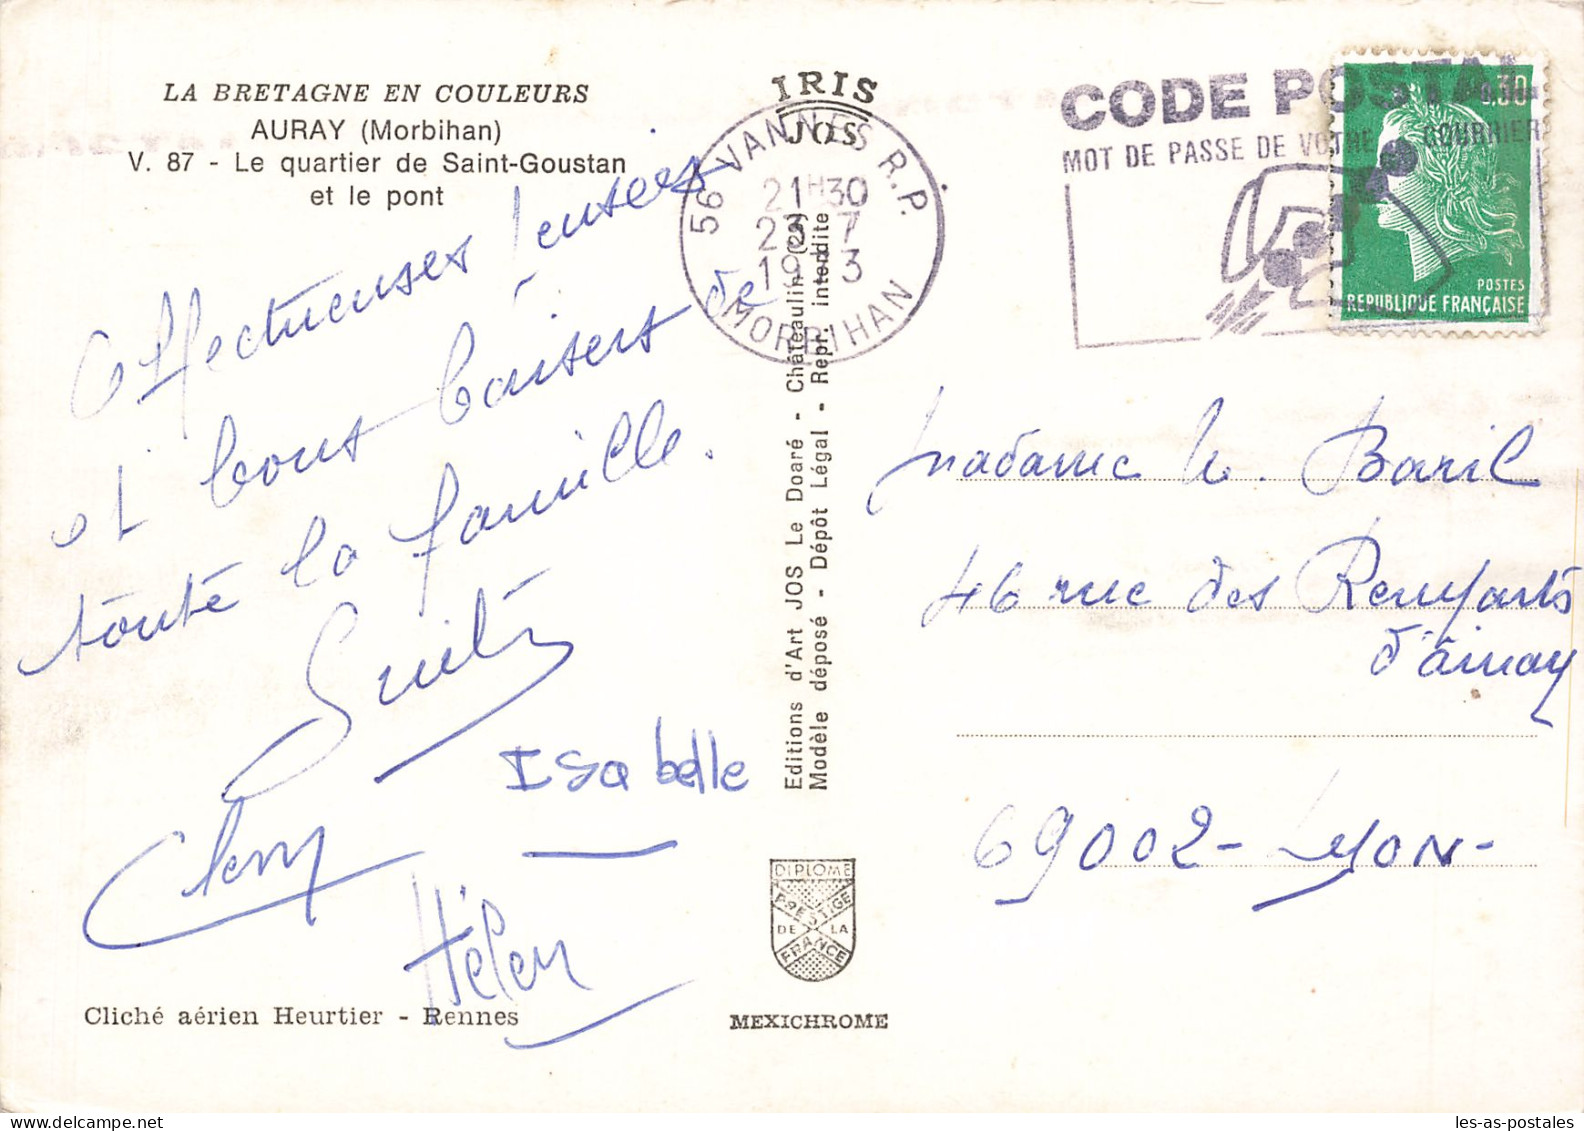 LA BRETAGNE EN COULEURS
AURAY (Morbihan)
V. 87 - Le quartier de Saint-Goustan
et le pont
Affectueuses pensées
et bons baisers de
toute la famille.
Isabelle
Hélen
Cliché aérien Heurtier - Rennes
IRIS
JOS
56 VANNES R.P.
21H30
23 7
19 3
MORBIHAN
Editions d'Art JOS Le Doaré - Châteaulin (29)
Modèle déposé - Dépôt Légal - Repr. interdite
DIPLOME
PRESTIGE
DE LA
FRANCE
MEXICHROME
CODE POSTAL
MOT DE PASSE DE VOTRE COURRIER
0,30
POSTES
REPUBLIQUE FRANÇAISE
Madame N. Baril
46 rue des Remparts
d'ainay
69002 - Lyon -
les-as-postales.com